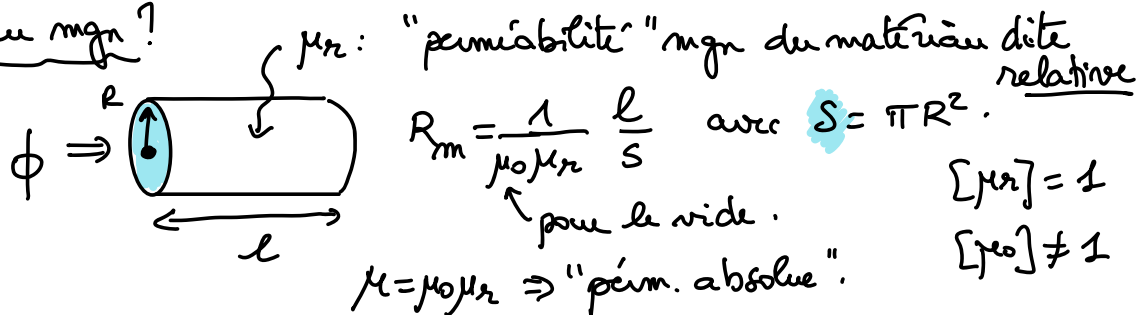 mgn ?
μr : "perméabilité" mgn du matériau dite
relative
R
ϕ ⇒
Rm = 1/(μ0μr) l/S avec S = πR².
[μr] = 1
pour le vide.
[μ0] ≠ 1
l
μ = μ0μr ⇒ "pérm. absolue".